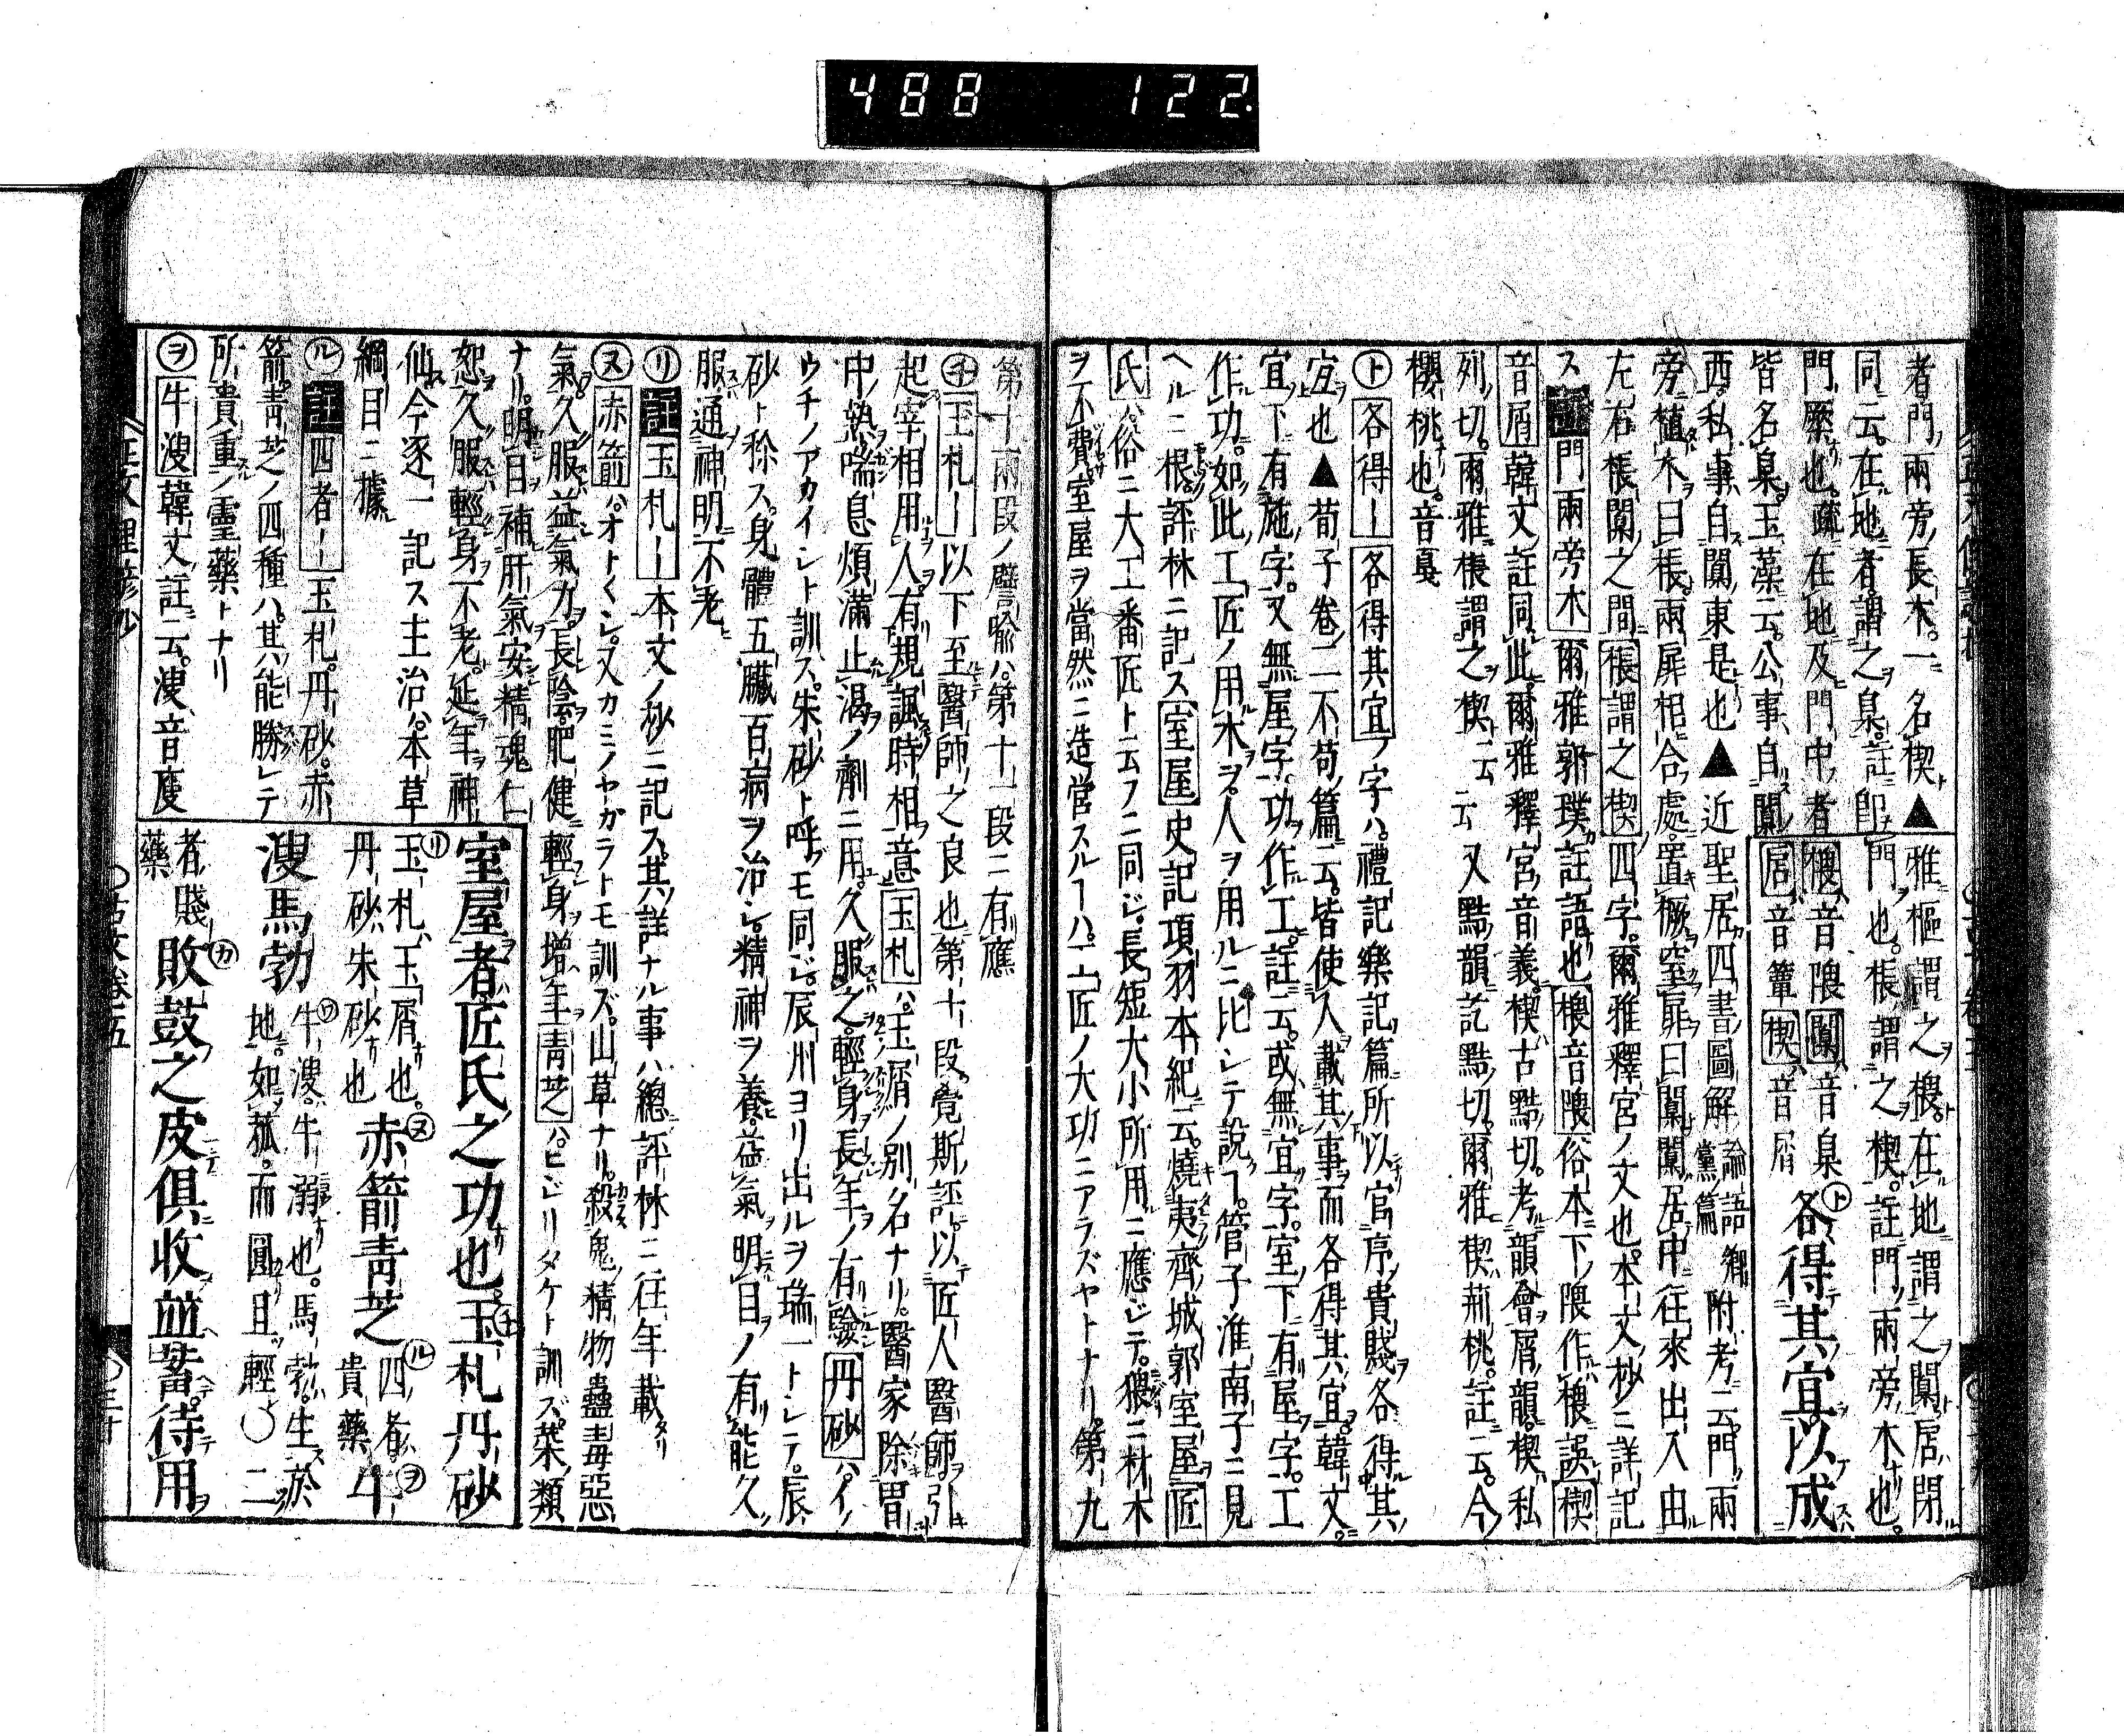 488 122
者門兩旁長木。一名楔▲
同云。在地者謂之臬。註即
門橜也。疏在地及門中者
皆名臬。玉藻云。公事自闑
西。私事自闑東是也▲近聖居四書圖解論語鄉黨篇附考云。門兩
旁植木曰棖。兩扉相合處。置橛窒扉曰闑。闑居中往來出入由
左右棖闑之間棖謂之楔四字。爾雅釋宮ノ文也。本文ノ抄ニ詳記
ス註門兩旁木爾雅郭璞註語也椳音隈俗本下ノ隈作椳誤楔
音屑韓文註同此。爾雅釋宮音義。楔古黠切。考韻會屑韻。楔私
列切。爾雅棖謂之楔云云又黠韻訖黠切。爾雅楔荊桃。註云。今
櫻桃也。音戛
雅樞謂之椳。在地謂之闑。扂閉
門也。棖謂之楔。註門兩旁木也。
椳音隈闑音臬
扂音簟楔音屑
ト各得其宜以成
ト各得ー各得其宜ノ字ハ。禮記樂記篇所以官序貴賤各得其
宜也▲荀子卷二不苟篇云。皆使人載其事而各得其宜。韓文。
宜下有施字。又無屋字。功作工。註云。或無宜字。室下有屋字。工
作功。如此工匠ノ用木ヲ。人ヲ用ルニ比シテ說ヿ。管子淮南子ニ見
ヘルニ根。評林ニ記ス室屋史記項羽本紀云。燒夷齊城郭室屋匠
氏ハ俗ニ大工番匠ト云フニ同ジ。長短大小所用ニ應ジテ。猥ニ材木
ヲ不費。室屋ヲ當然ニ造營スルヿハ。工匠ノ大功ニアラズヤトナリ。第九
第十兩段ノ譬喩ハ。第十一段ニ有應
チ玉札ー以下至醫師之良也第十段。覺斯評。以匠人醫師引
起宰相用人。有規諷時相意玉札ハ。玉屑ノ別名ナリ。醫家除胃
中熱喘息煩滿止渴ノ劑ニ用。久服之。輕身長年ノ有驗丹砂ハ。イ
ウチノアカイシト訓ス。朱砂ト呼ブモ同ジ。辰州ヨリ出ルヲ瑞一トシテ。辰
砂ト稱ス。身體五臟百病ヲ治シ。精神ヲ養。益氣明目ノ有能。久
服通神明不老
リ註玉札ー本文ノ抄ニ記ス。其詳ナル事ハ總評林ニ往年載タリ
ヌ赤箭ハ。オトクシ。又カミノヤガラトモ訓ズ。山草ナリ。殺鬼精物蠱毒惡
氣。久服益氣力。長陰。肥健。輕身增年青芝ハ。ヒジリダケト訓ズ。菜類
ナリ。明目補肝氣安精魂仁
恕。久服輕身不老。延年神
仙。今逐一記ス主治ハ。本草
綱目ニ據
ル註四者ー玉札。丹砂。赤
箭。青芝ノ四種ハ。其能勝レテ
所貴重ノ靈藥トナリ
ヲ牛溲韓文註云。溲音廋
室屋者匠氏之功也チ玉札丹砂
リ玉札玉屑也。
丹砂朱砂也
ヌ赤箭青芝ル四者
貴藥ヲ牛
溲馬勃ワ牛溲牛溺也。馬勃。生於
地。如菰。而圓且輕〇二
者賤
藥カ敗鼓之皮俱收並蓄。待用